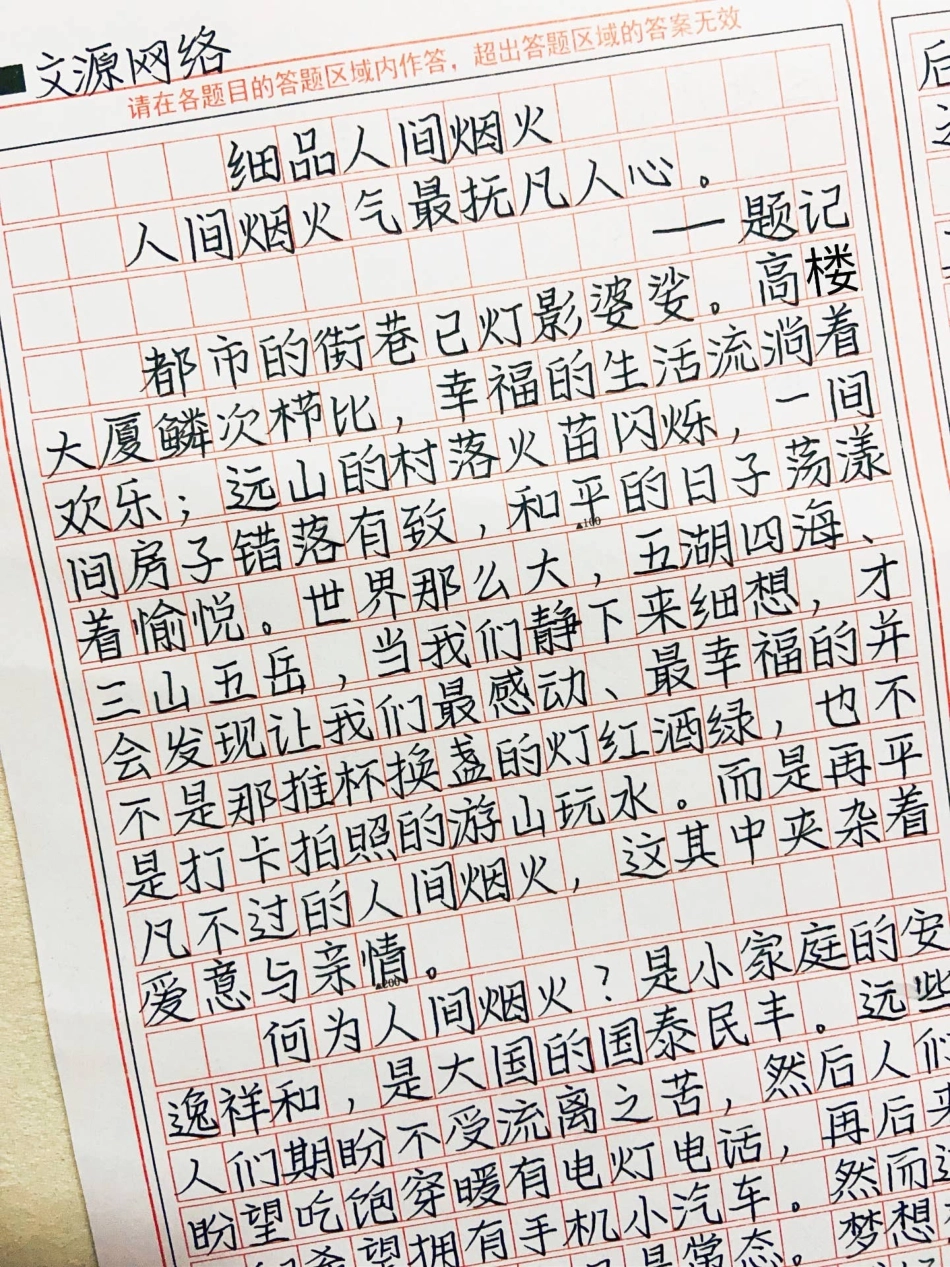 文源网络
请在各题目的答题区域内作答，超出答题区域的答案无效
细品人间烟火
人间烟火气最抚凡人心。
——题记
都市的街巷已灯影婆娑。高楼
大厦鳞次栉比，幸福的生活流淌着
欢乐；远山的村落火苗闪烁，一间
间房子错落有致，和平的日子荡漾
▲100
着愉悦。世界那么大，五湖四海、
三山五岳，当我们静下来细想，才
会发现让我们最感动、最幸福的并
不是那推杯换盏的灯红酒绿，也不
是打卡拍照的游山玩水。而是再平
凡不过的人间烟火，这其中夹杂着
爱意与亲情。
▲200
何为人间烟火？是小家庭的安
逸祥和，是大国的国泰民丰。远些
人们期盼不受流离之苦，然后人们
盼望吃饱穿暖有电灯电话，再后来
希望拥有手机小汽车。然而这
是常态。梦想
后